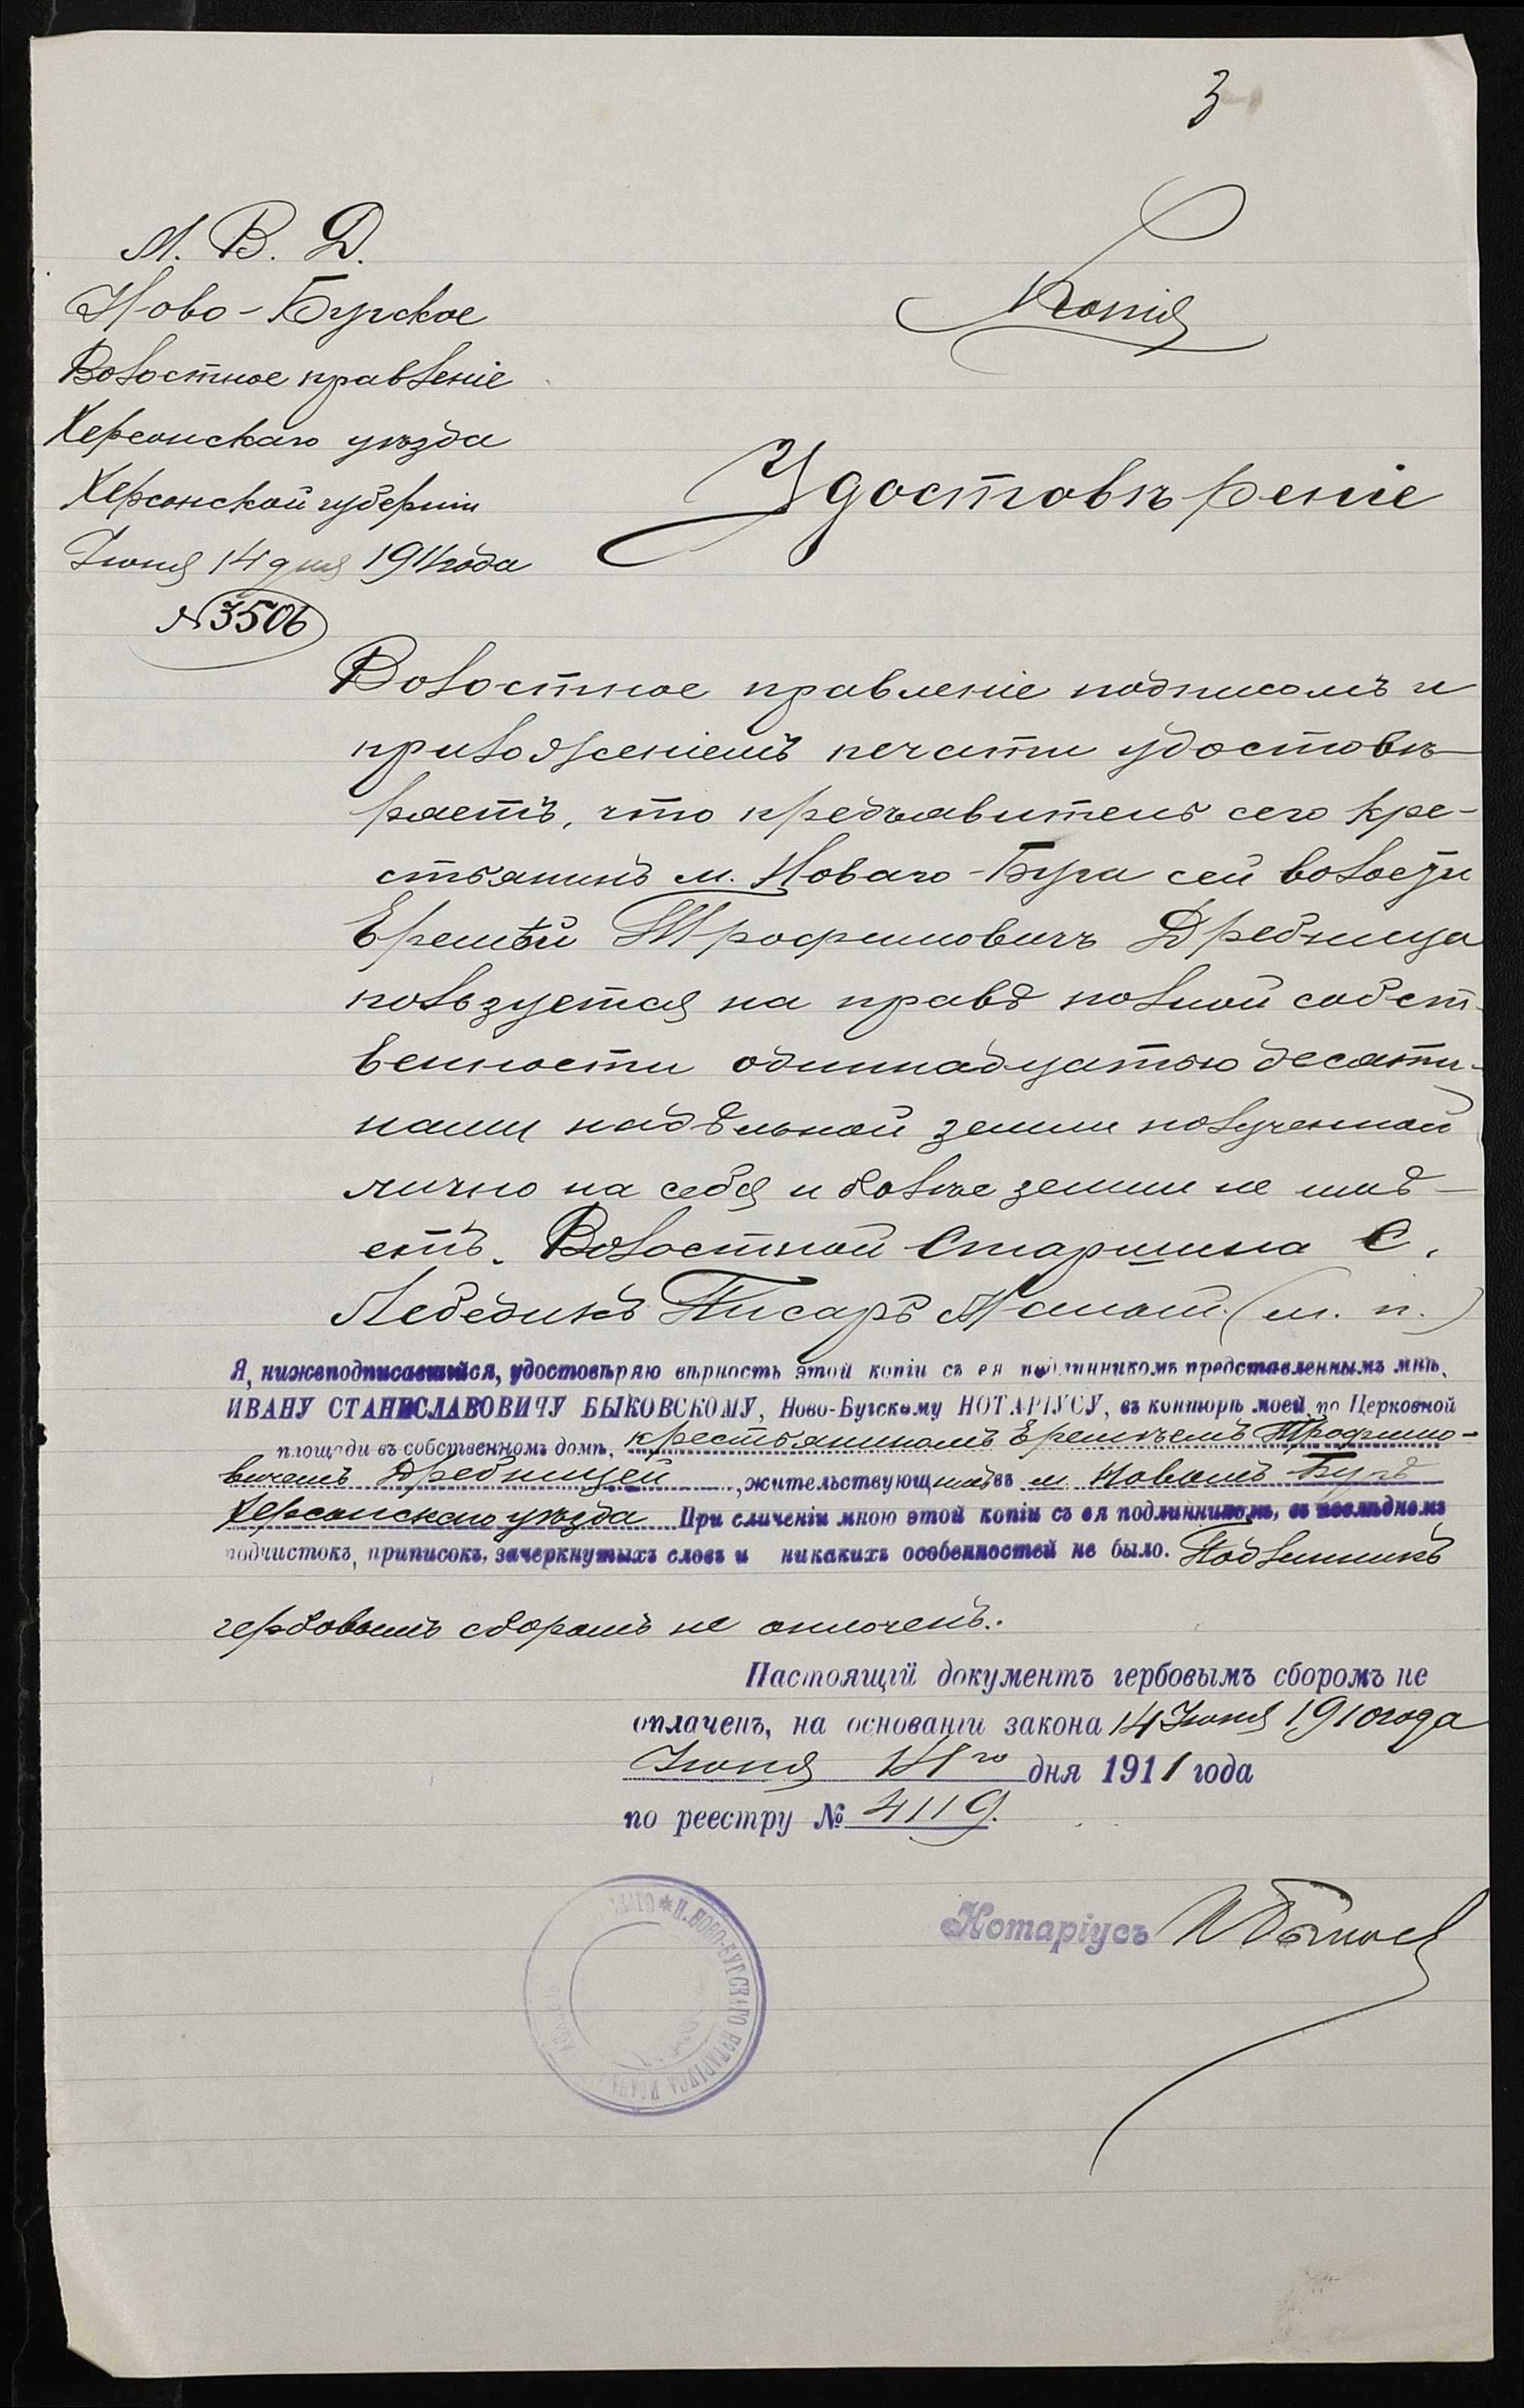 3
М. В. Д.
Копія
Ново-Бугское
Волостное правленіе
Херсонскаго уѣзда
Херсонской губерніи
Удостовѣреніе
Іюня 14 дня 1911 года
№ 3506
Волостное правленіе подписомъ и
приложеніемъ печати удостовѣ-
ряетъ, что предъявитель сего кре-
стьянинъ м. Новаго-Буга сей волости
Еремѣй Трофимовичъ Дребница
пользуется на правѣ полной собст-
венности одиннадцатью десяти-
нами надѣльной земли полученной
лично на себя и болѣе земли не имѣ-
етъ. Волостной Старшина С.
Лебедикъ Писарь (м. п.)
Я, нижеподписавшійся, удостовѣряю вѣрность этой копіи съ ея подлинникомъ представленнымъ мнѣ,
ИВАНУ СТАНИСЛАВОВИЧУ БЫКОВСКОМУ, Ново-Бугскому НОТАРІУСУ, въ конторѣ моей, по Церковной
площади въ собственномъ домѣ, крестьяниномъ Еремѣемъ Трофимо-
вичемъ Дребницей, жительствующимъ въ м. Новомъ-Бугѣ
Херсонскаго уѣзда При сличеніи мною этой копіи съ ея подлинникомъ, въ послѣднемъ
подчистокъ, приписокъ, зачеркнутыхъ словъ и никакихъ особенностей не было. Подлинникъ
гербовымъ сборомъ не оплоченъ.
Настоящій документъ гербовымъ сборомъ не
оплаченъ, на основаніи закона 14 Іюня 1910 года
Іюня 14го дня 1911 года
по реестру № 4119.
Нотаріусъ
* И. НОВО-БУГСКАГО НОТАРІУСА ИВАНА